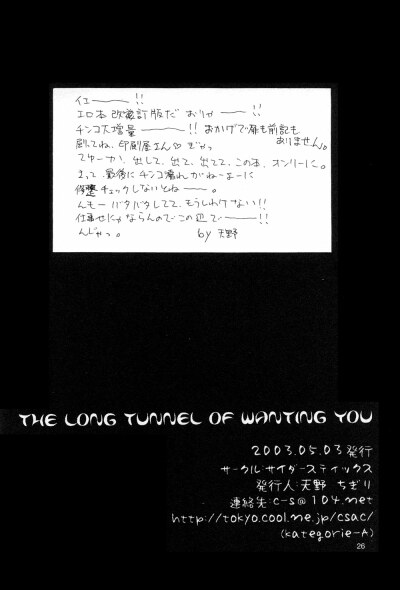 イエ――!!
エロ本 改電訂版だ おりゃ――!!
チンコ大増量――!! おかげで痛も前記も
ありません。
刷ってね、印刷屋さん♡ ぎゃっ
てゆーか、出して、出て、出てて、この本、オンリーに。
まって、最後に チンコ濡れがねーよーに
チェックしないとね――。
んもー バタバタしてて、もうしわけない!!
仕事せにゃならんのでこの辺で――!!
んじゃっ。 by 天野
THE LONG TUNNEL OF WANTING YOU
2003.05.03 発行
サークル:サイダースティックス
発行人:天野 ちぎり
連絡先:c-s@104.net
http://tokyo.cool.ne.jp/csac/
(kategorie-A)
26